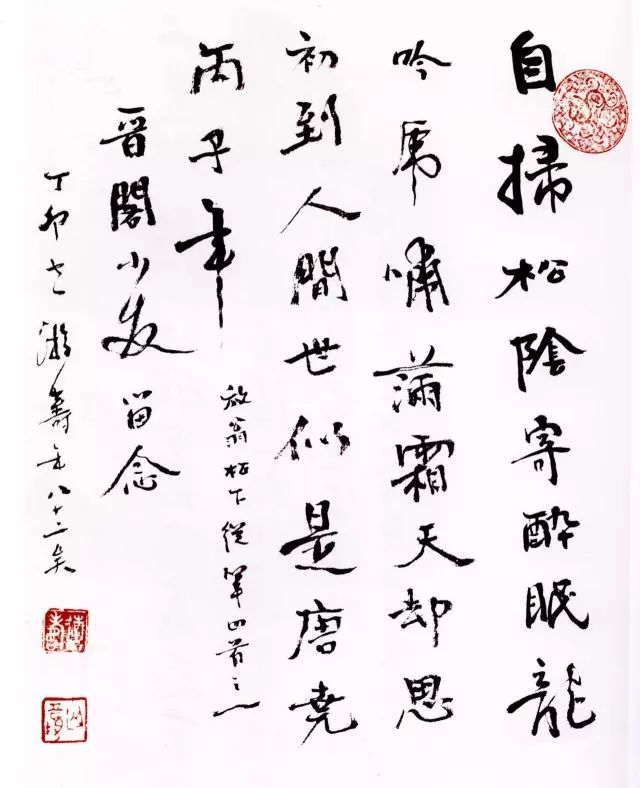 自掃松陰寄醉眠龍
吟虎嘯滿霜天却思
初到人間世似是唐堯
丙子年
放翁松下從筆四首之一
晉閣少友留念
丁卯 游壽年八十二矣